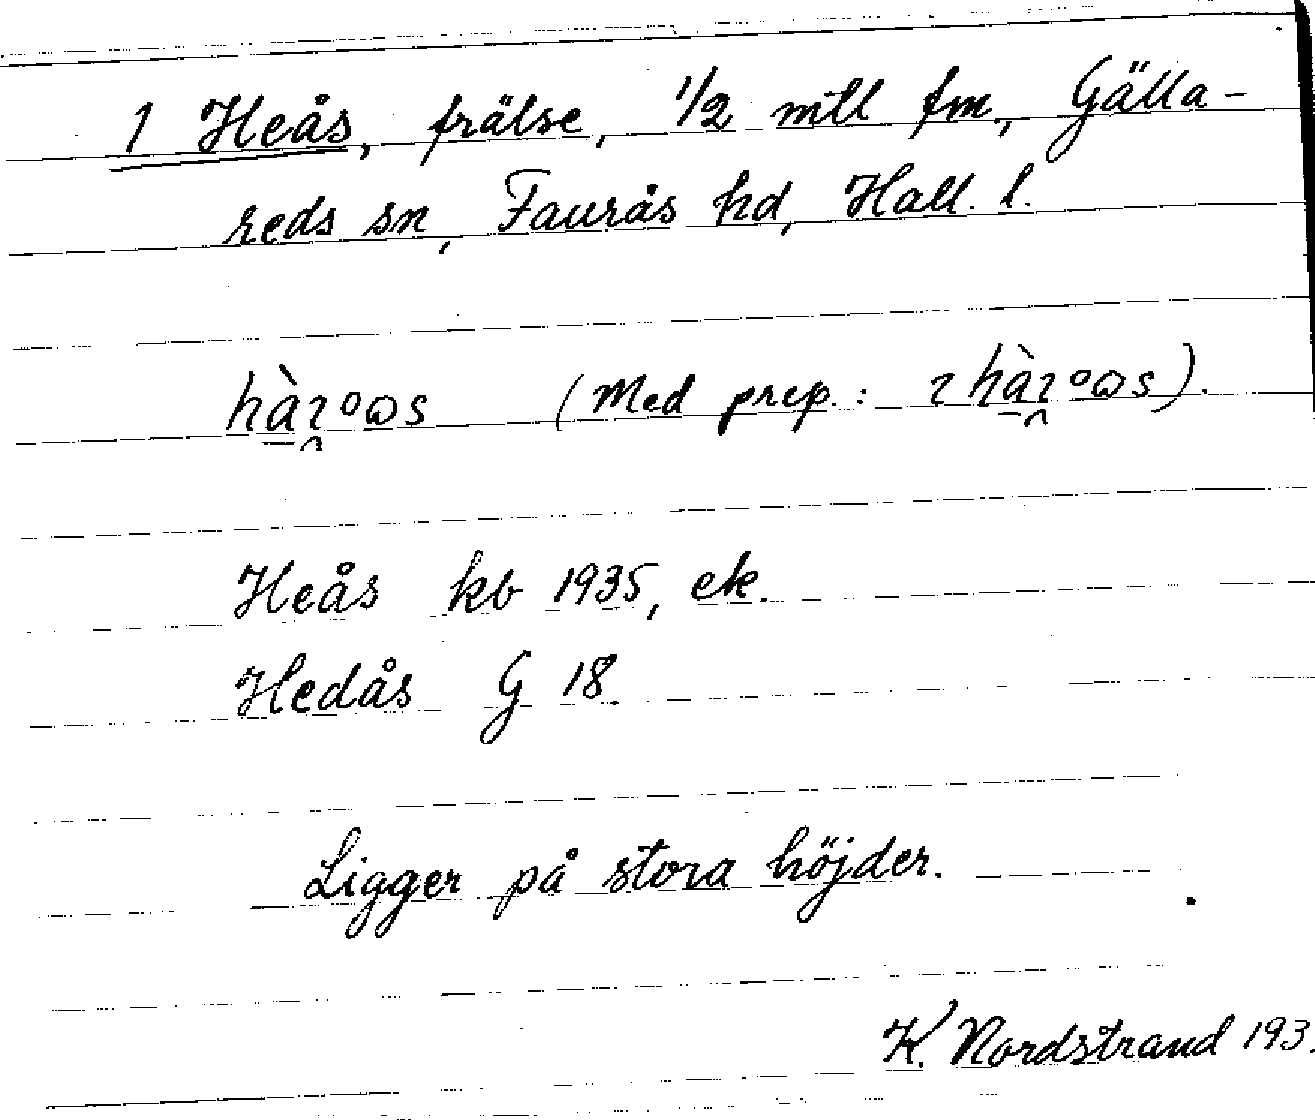 1 Heås, frälse, 1/2 mtl fm, Gälla-
reds sn, Faurås hd, Hall. l.
(Med prep.:
Heås kb 1935, ek.
Hedås G 18.
Ligger på stora höjder.
K. Nordstrand 193